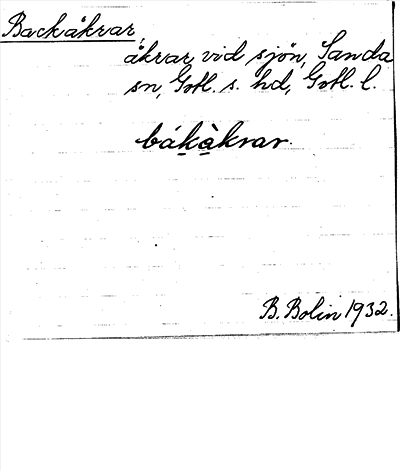 Backåkrar,
åkrar vid sjön, Sanda
sn, Gotl. s. hd, Gotl. l.
bákàkrar.
B. Bolin 1932.